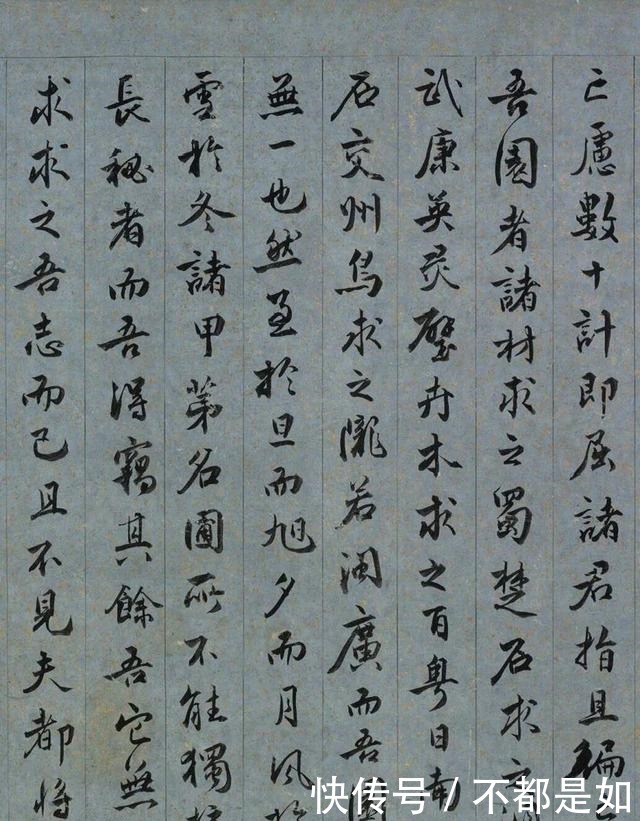 亡慮數十計即屈諸君指且徧
吾園者諸材求之蜀楚石求之
武康英灵壁卉木求之百粤日南
石交州鳥求之隴若閩廣而吾
無一也然至於旦而旭夕而月風
雪於冬諸甲第名圃所不能獨
長秘者而吾得竊其餘吾它無
求求之吾志而已且不見夫都將
快传号/不都是如